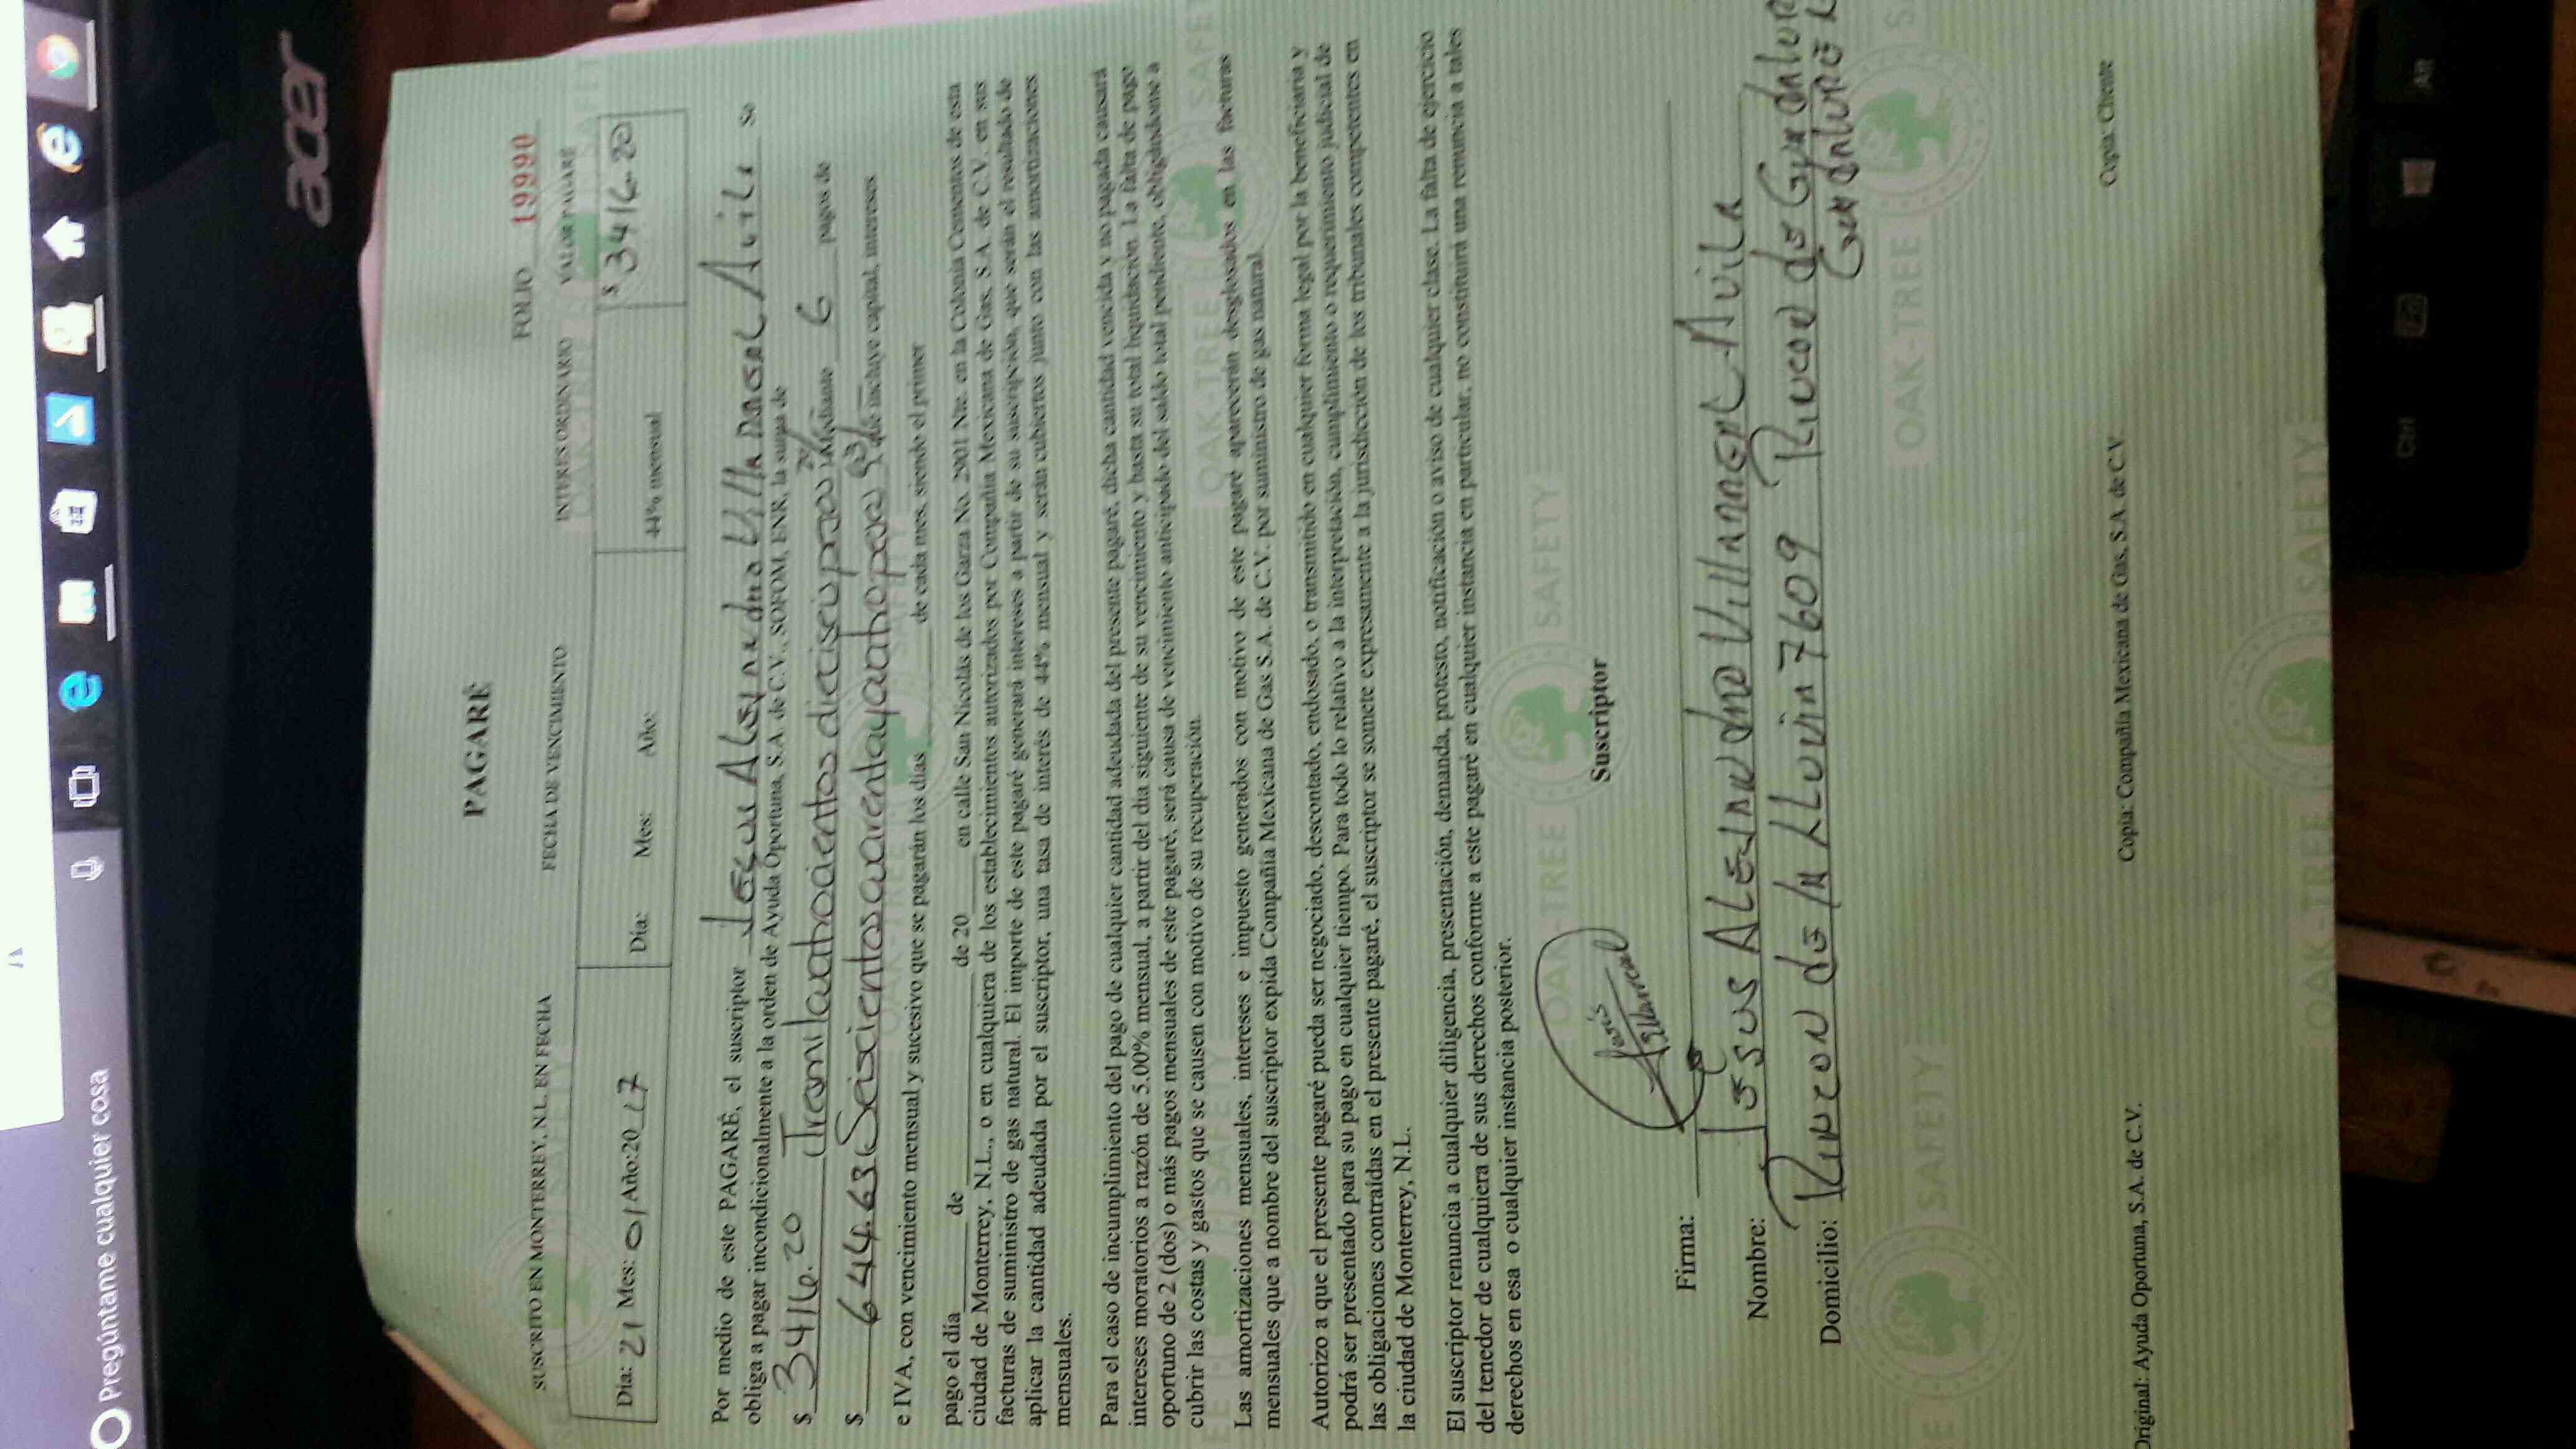 Pregúntame cualquier cosa
acer
PAGARÉ
FOLIO 19990
SUSCRITO EN MONTERREY, N.L. EN FECHA FECHA DE VENCIMIENTO INTERES ORDINARIO VALOR PAGARÉ
Día: 21 Mes: 01 Año:20 17 Día: Mes: Año: 44% mensual $ 3416.20
Por medio de este PAGARÉ, el suscriptor Jesus Alejandro Villarreal Avila Se
obliga a pagar incondicionalmente a la orden de Ayuda Oportuna, S.A. de C.V., SOFOM, ENR, la suma de
$ 3416.20 (Tresmilcuatrocientosdieciseispesos 20/ mediante 6 pagos de
$ 644.63 (Seiscientoscuarentaycuatropesos 63/ que incluye capital, intereses
e IVA, con vencimiento mensual y sucesivo que se pagarán los días de cada mes, siendo el primer
pago el día de de 20 en calle San Nicolás de los Garza No. 2901 Nte. en la Colonia Cementos de esta
ciudad de Monterrey, N.L., o en cualquiera de los establecimientos autorizados por Compañía Mexicana de Gas, S.A. de C.V. en sus
facturas de suministro de gas natural. El importe de este pagaré generará intereses a partir de su suscripción, que serán el resultado de
aplicar la cantidad adeudada por el suscriptor, una tasa de interés de 44% mensual y serán cubiertos junto con las amortizaciones
mensuales.
Para el caso de incumplimiento del pago de cualquier cantidad adeudada del presente pagaré, dicha cantidad vencida y no pagada causará
intereses moratorios a razón de 5.00% mensual, a partir del día siguiente de su vencimiento y hasta su total liquidación. La falta de pago
oportuno de 2 (dos) o más pagos mensuales de este pagaré, será causa de vencimiento anticipado del saldo total pendiente, obligándome a
cubrir las costas y gastos que se causen con motivo de su recuperación.
Las amortizaciones mensuales, intereses e impuesto generados con motivo de este pagaré aparecerán desglosados en las facturas
mensuales que a nombre del suscriptor expida Compañía Mexicana de Gas S.A. de C.V. por suministro de gas natural.
Autorizo a que el presente pagaré pueda ser negociado, descontado, endosado, o transmitido en cualquier forma legal por la beneficiaria y
podrá ser presentado para su pago en cualquier tiempo. Para todo lo relativo a la interpretación, cumplimiento o requerimiento judicial de
las obligaciones contraídas en el presente pagaré, el suscriptor se somete expresamente a la jurisdicción de los tribunales competentes en
la ciudad de Monterrey, N.L.
El suscriptor renuncia a cualquier diligencia, presentación, demanda, protesto, notificación o aviso de cualquier clase. La falta de ejercicio
del tenedor de cualquiera de sus derechos conforme a este pagaré en cualquier instancia en particular, no constituirá una renuncia a tales
derechos en esa o cualquier instancia posterior.
Suscriptor
Firma: Jesús Villarreal
Nombre: Jesus Alejandro Villarreal Avila
Domicilio: Rincon de la Lluvia 7609 Rincon de Guadalupe
Guadalupe
Original: Ayuda Oportuna, S.A. de C.V. Copia: Compañía Mexicana de Gas, S.A. de C.V Copia: Cliente
OAK-TREE SAFETY
Ctrl